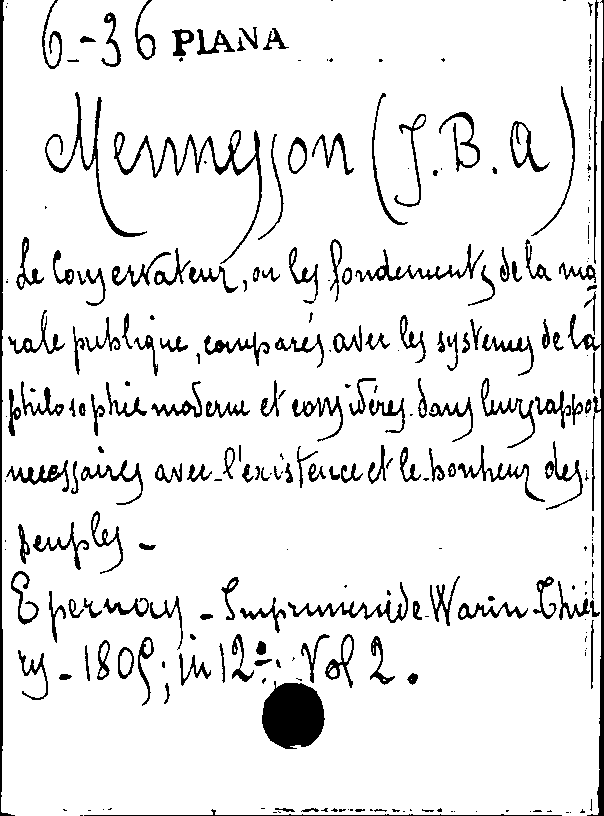 6-36 PIANA
Mennesson (J.B.A)
Le Conservateur, ou les fondements de la mo
rale publique, comparés avec les systemes de la
philosophie moderne et considéres dans leurs rappor
necessaires avec l'existence et le bonheur des
peuples -
Epernay - Imprimerie de Warin-Thier
ry - 180 ; in 12º: Vol 2.